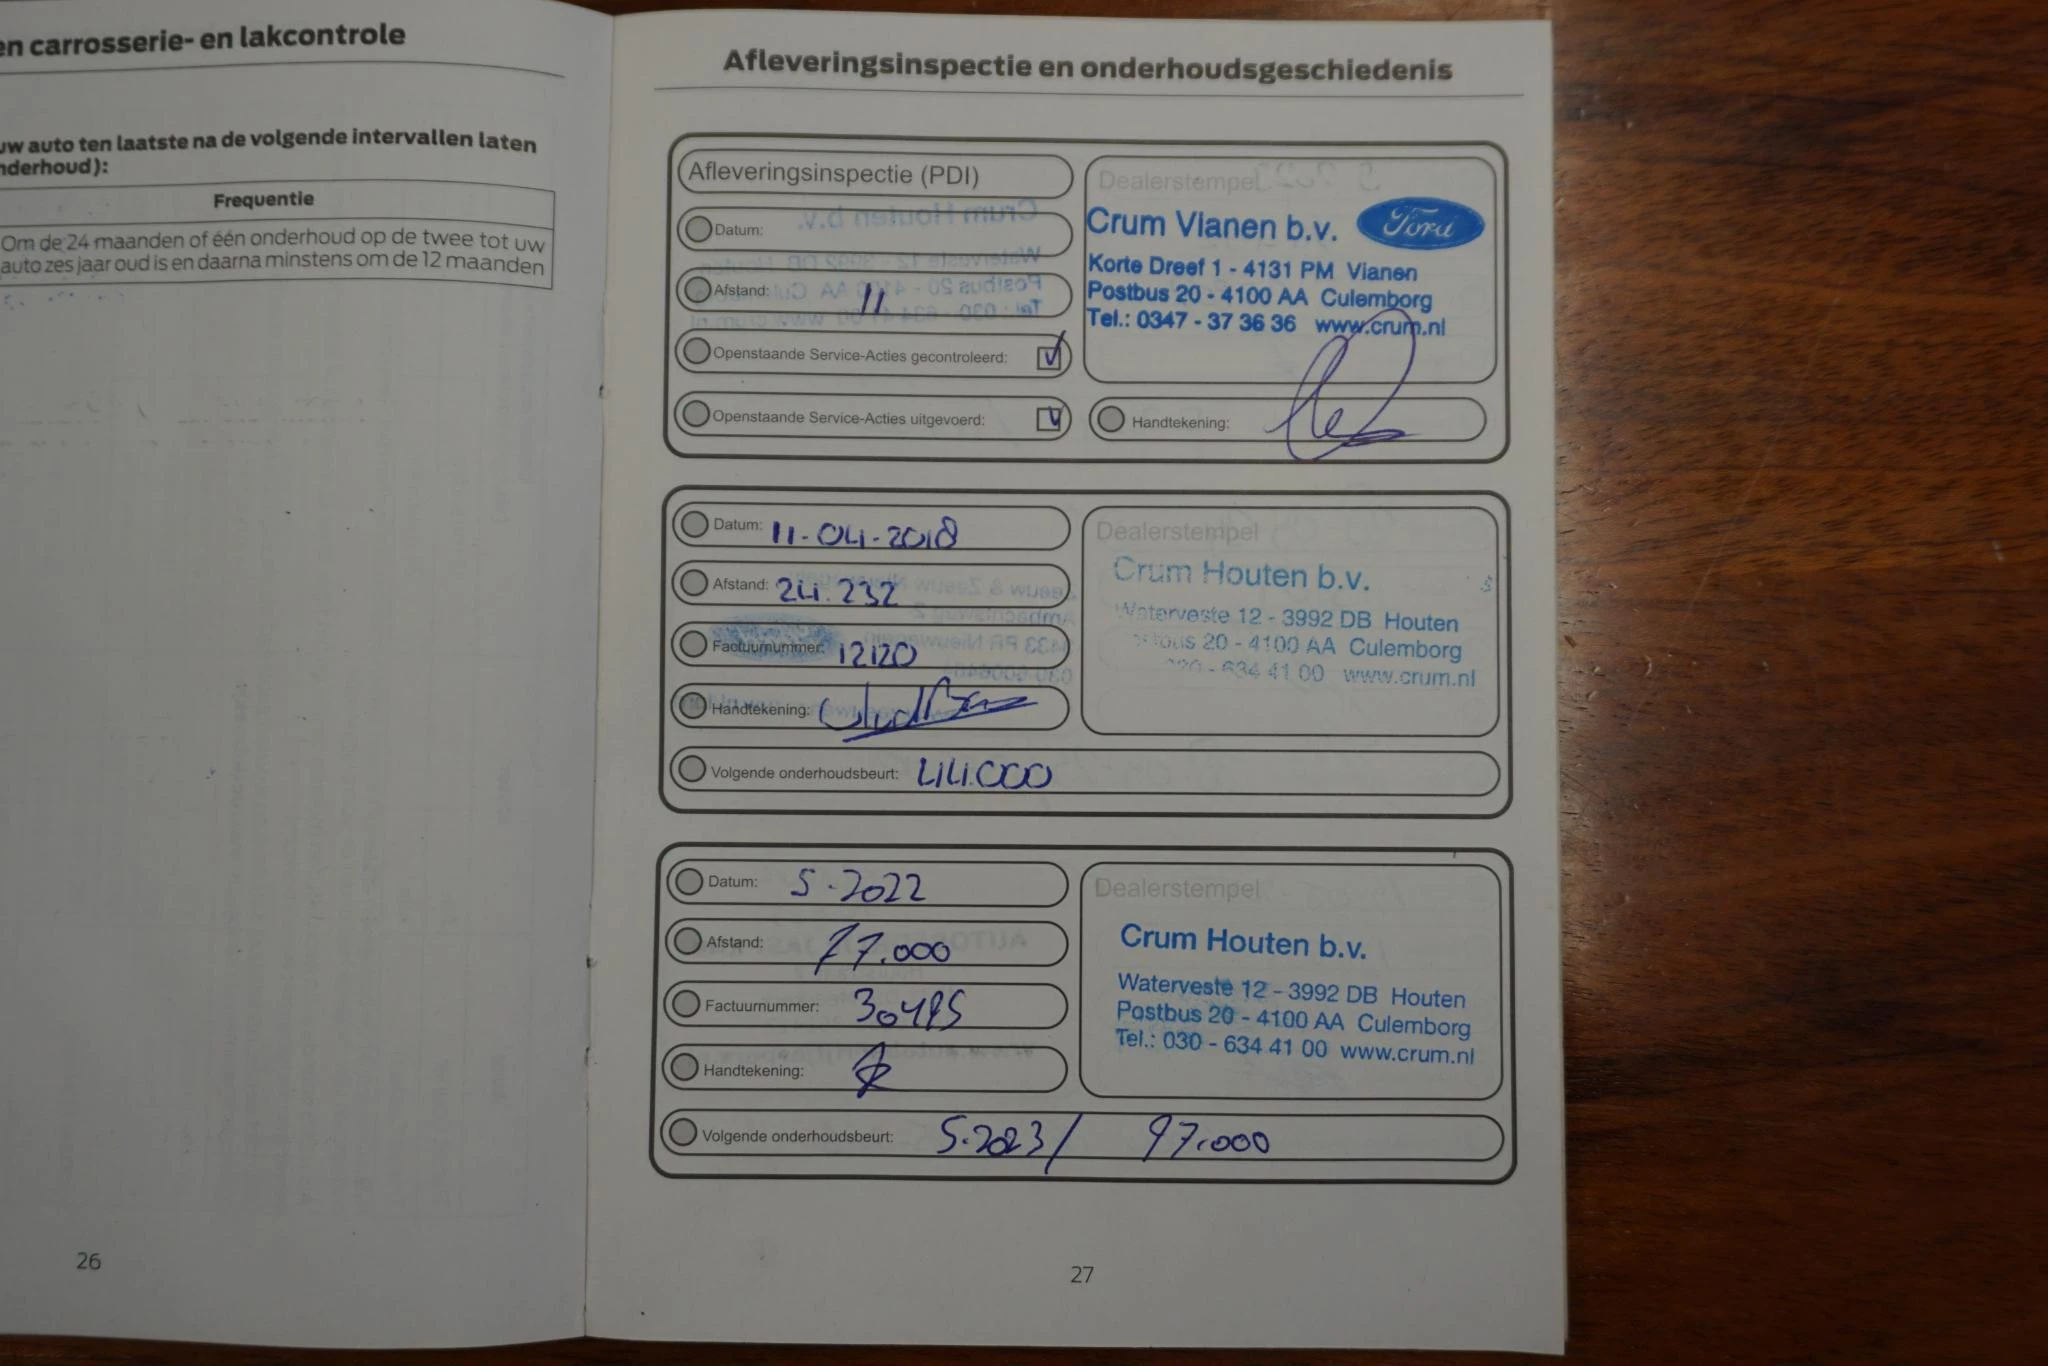 en carrosserie- en lakcontrole
uw auto ten laatste na de volgende intervallen laten
nderhoud):
Frequentie
Om de 24 maanden of één onderhoud op de twee tot uw
auto zes jaar oud is en daarna minstens om de 12 maanden
26
Afleveringsinspectie en onderhoudsgeschiedenis
Afleveringsinspectie (PDI)
Datum:
Afstand: 11
Openstaande Service-Acties gecontroleerd:
Openstaande Service-Acties uitgevoerd:
Dealerstempel
Crum Vianen b.v. Ford
Korte Dreef 1 - 4131 PM Vianen
Postbus 20 - 4100 AA Culemborg
Tel.: 0347 - 37 36 36 www.crum.nl
Handtekening:
Datum: 11-04-2018
Afstand: 24.232
Factuurnummer: 12120
Handtekening:
Dealerstempel
Crum Houten b.v.
Waterveste 12 - 3992 DB Houten
20 - 4100 AA Culemborg
- 634 41 00 www.crum.nl
Volgende onderhoudsbeurt: 44.000
Datum: 5-2022
Afstand: 77.000
Factuurnummer:
Handtekening:
Dealerstempel
Crum Houten b.v.
Waterveste 12 - 3992 DB Houten
Postbus 20 - 4100 AA Culemborg
Tel.: 030 - 634 41 00 www.crum.nl
Volgende onderhoudsbeurt: 5-2023 / 97.000
27